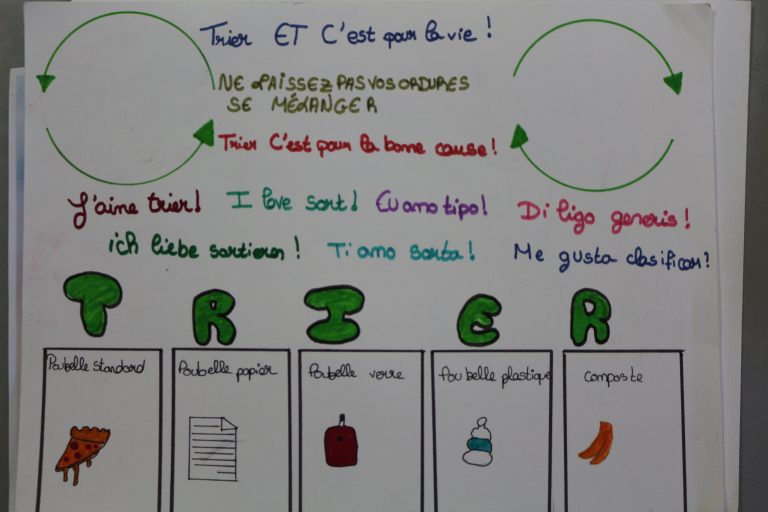 Trier ET C'est pour la vie !
NE LAISSEZ PAS VOS ORDURES
SE MÉLANGER
Trier C'est pour la bonne cause !
J'aime trier! I love sort! Eu amo tipo! Di ligo generis !
ich liebe sortieren ! Ti amo sorta ! Me gusta clasificar?
TRIER
Poubelle standard Poubelle papier Poubelle verre Poubelle plastique composte